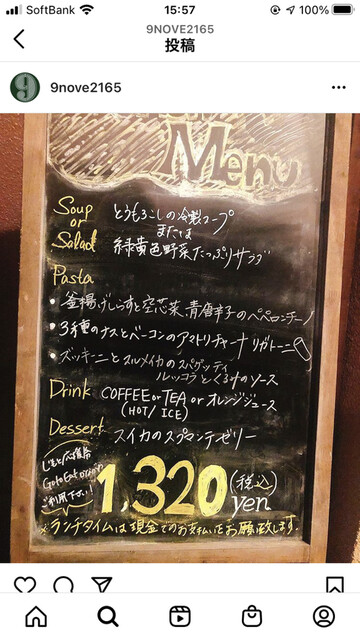 SoftBank 15:57 100%
9NOVE2165
投稿
9nove2165
Menu
Soup
or
Salad
とうもろこしの冷製スープ
または
緑黄色野菜たっぷりサラダ
Pasta
• 釜揚げしらすと空芯菜、青唐辛子のペペロンチーノ
• 3種のナスとベーコンのアマトリチャーナ リガトーニ
• ズッキーニとスルメイカのスパゲッティ
ルッコラとくるみのソース
Drink
COFFEE or TEA or オレンジジュース
(HOT/ICE)
Dessert
スイカのスプマンテゼリー
Go to Eat
ご利用下さい!
1,320 (税込)
yen
※ランチタイムは現金でのお支払いをお願い致します.